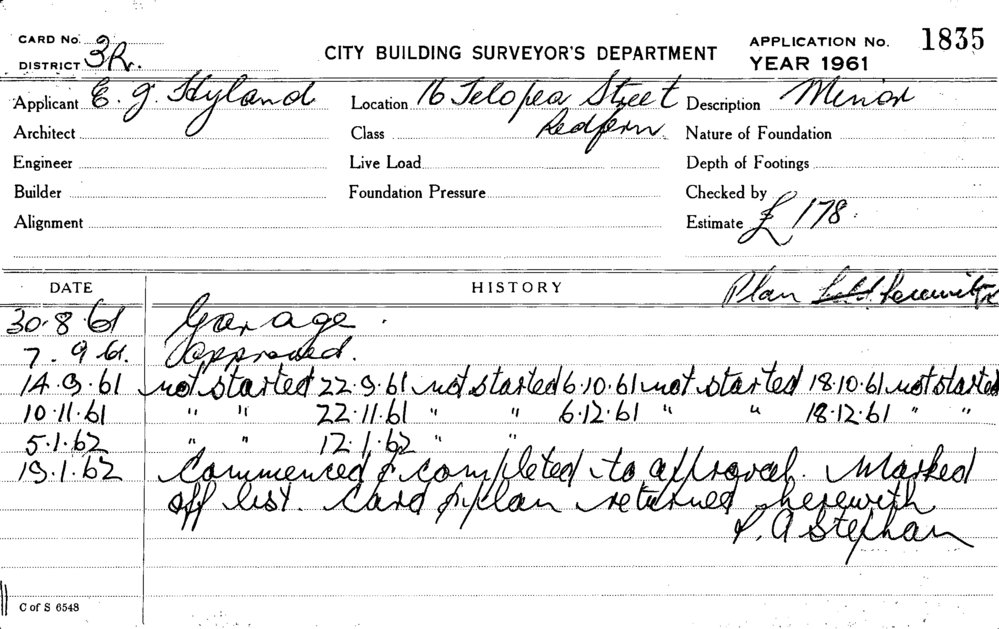 CARD No.
DISTRICT 3R.
CITY BUILDING SURVEYOR'S DEPARTMENT
APPLICATION No. 1835
YEAR 1961
Applicant E. J. Hyland Location 16 Telopea Street Description Minor
Architect Class Redfern Nature of Foundation
Engineer Live Load Depth of Footings
Builder Foundation Pressure Checked by
Alignment Estimate £178
DATE HISTORY Plan herewith
30.8.61 Garage.
7.9.61. Approved.
14.9.61 not started 22.9.61 not started 6.10.61 not started 18.10.61 not started
10.11.61 " " 22.11.61 " " 6.12.61 " " 18.12.61 " "
5.1.62 " " 12.1.62 " "
19.1.62 Commenced & completed to approval. Marked
off list. Card & plan returned herewith
P. A Stephan
C of S 6548